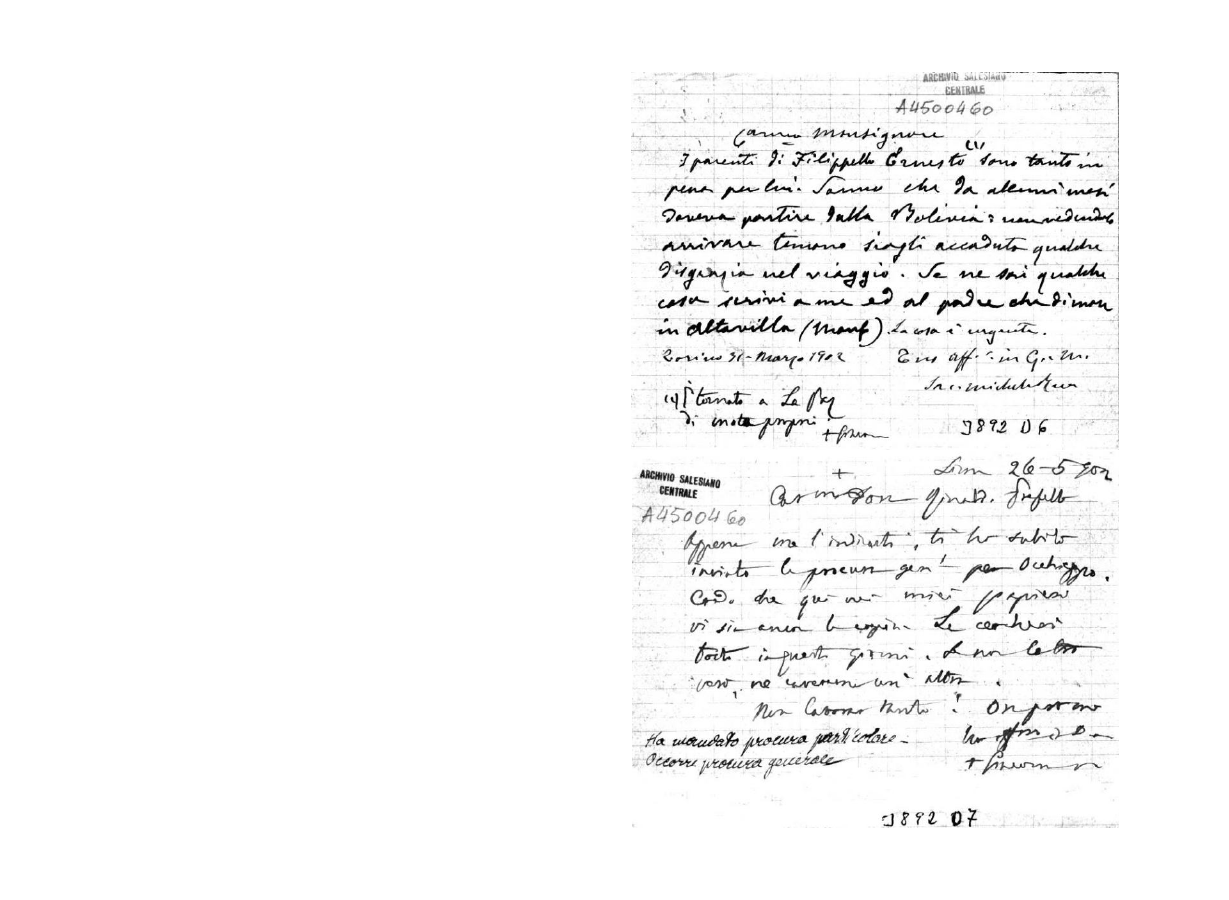 ARCHIVIO SALESIANO
CENTRALE
A4500460
Car.mo Monsignore
I parenti di Filippello Ernesto (1) sono tanto in
pena per lui. Sanno che da alcuni mesi
doveva partire dalla Bolivia: non vedendolo
arrivare temono siagli accaduta qualche
disgrazia nel viaggio. Se ne sai qualche
cosa scrivi a me ed al padre che dimora
in Altavilla (Monf). La cosa è urgente.
Torino 31-Marzo 1902 Tuo aff. in G. e M.
Sac. Michele Rua
(1) È tornato a La Paz
di motu proprio
J892 D6
ARCHIVIO SALESIANO
CENTRALE
A4500460
Lima 26-5-902
Car.mo Don
Appena me l'indicasti, ti ho subito
inviato la procura gen. per Occhieppo.
Credo che qui nei miei
vi sia ancora la copia. La cercherai
tosto in questi giorni. Se non
caso, ne caveremo un' altra.
Non lavorar tanto!
Ha mandato procura particolare -
Occorre procura generale
J892 D7